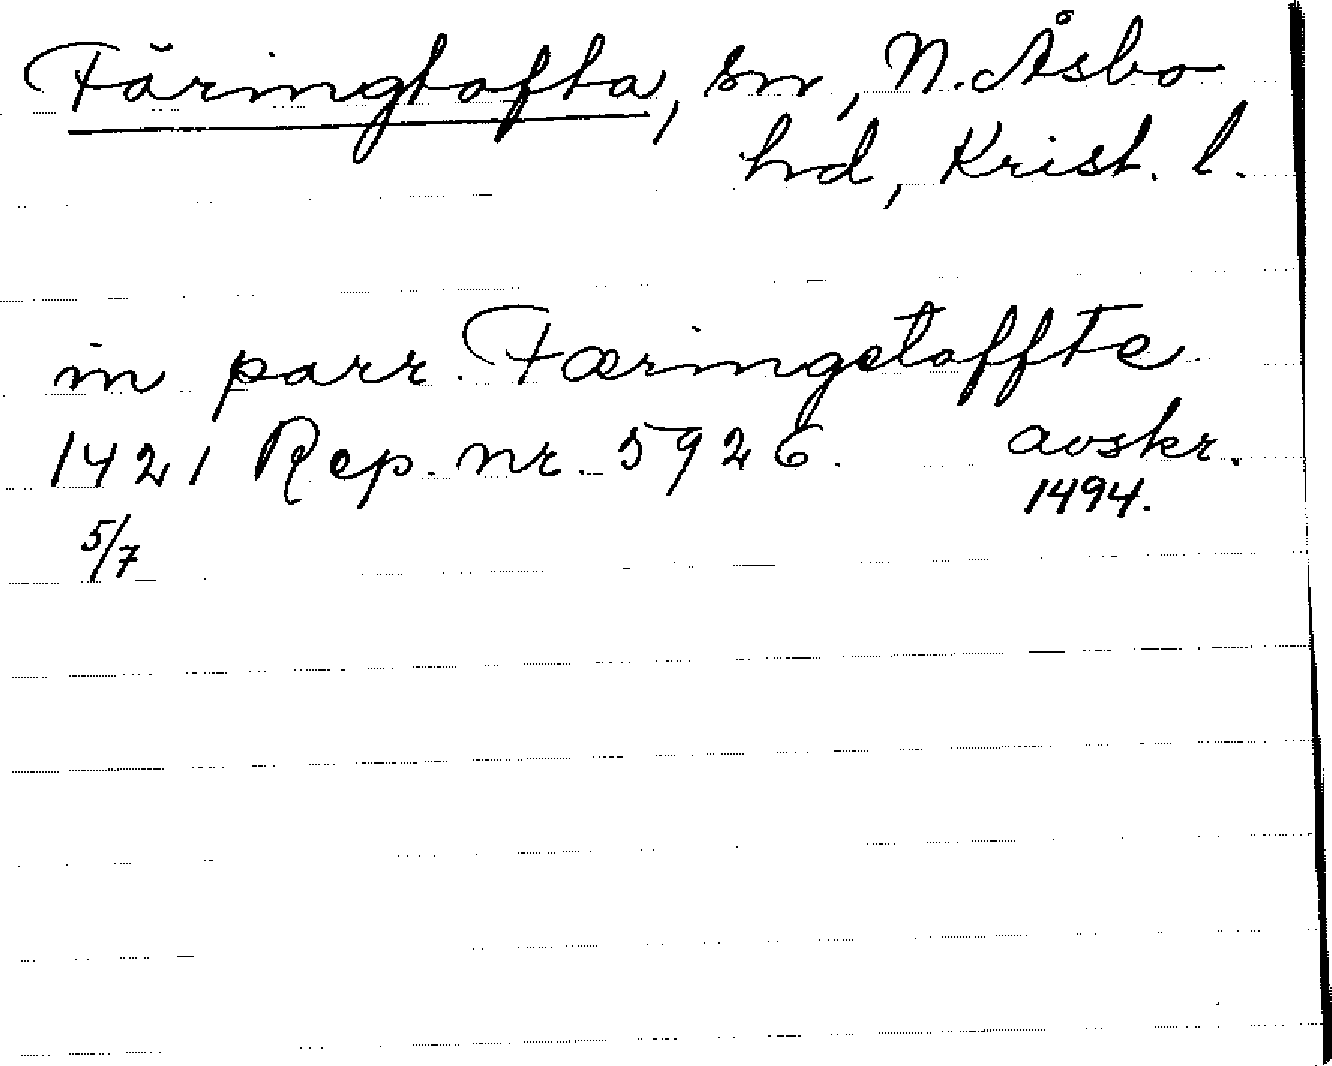 Färingtofta, sn, N. Åsbo
hd, Krist. l.
in parr. Færingetoffte
1421 Rep. nr. 5926. avskr.
5/7 1494.